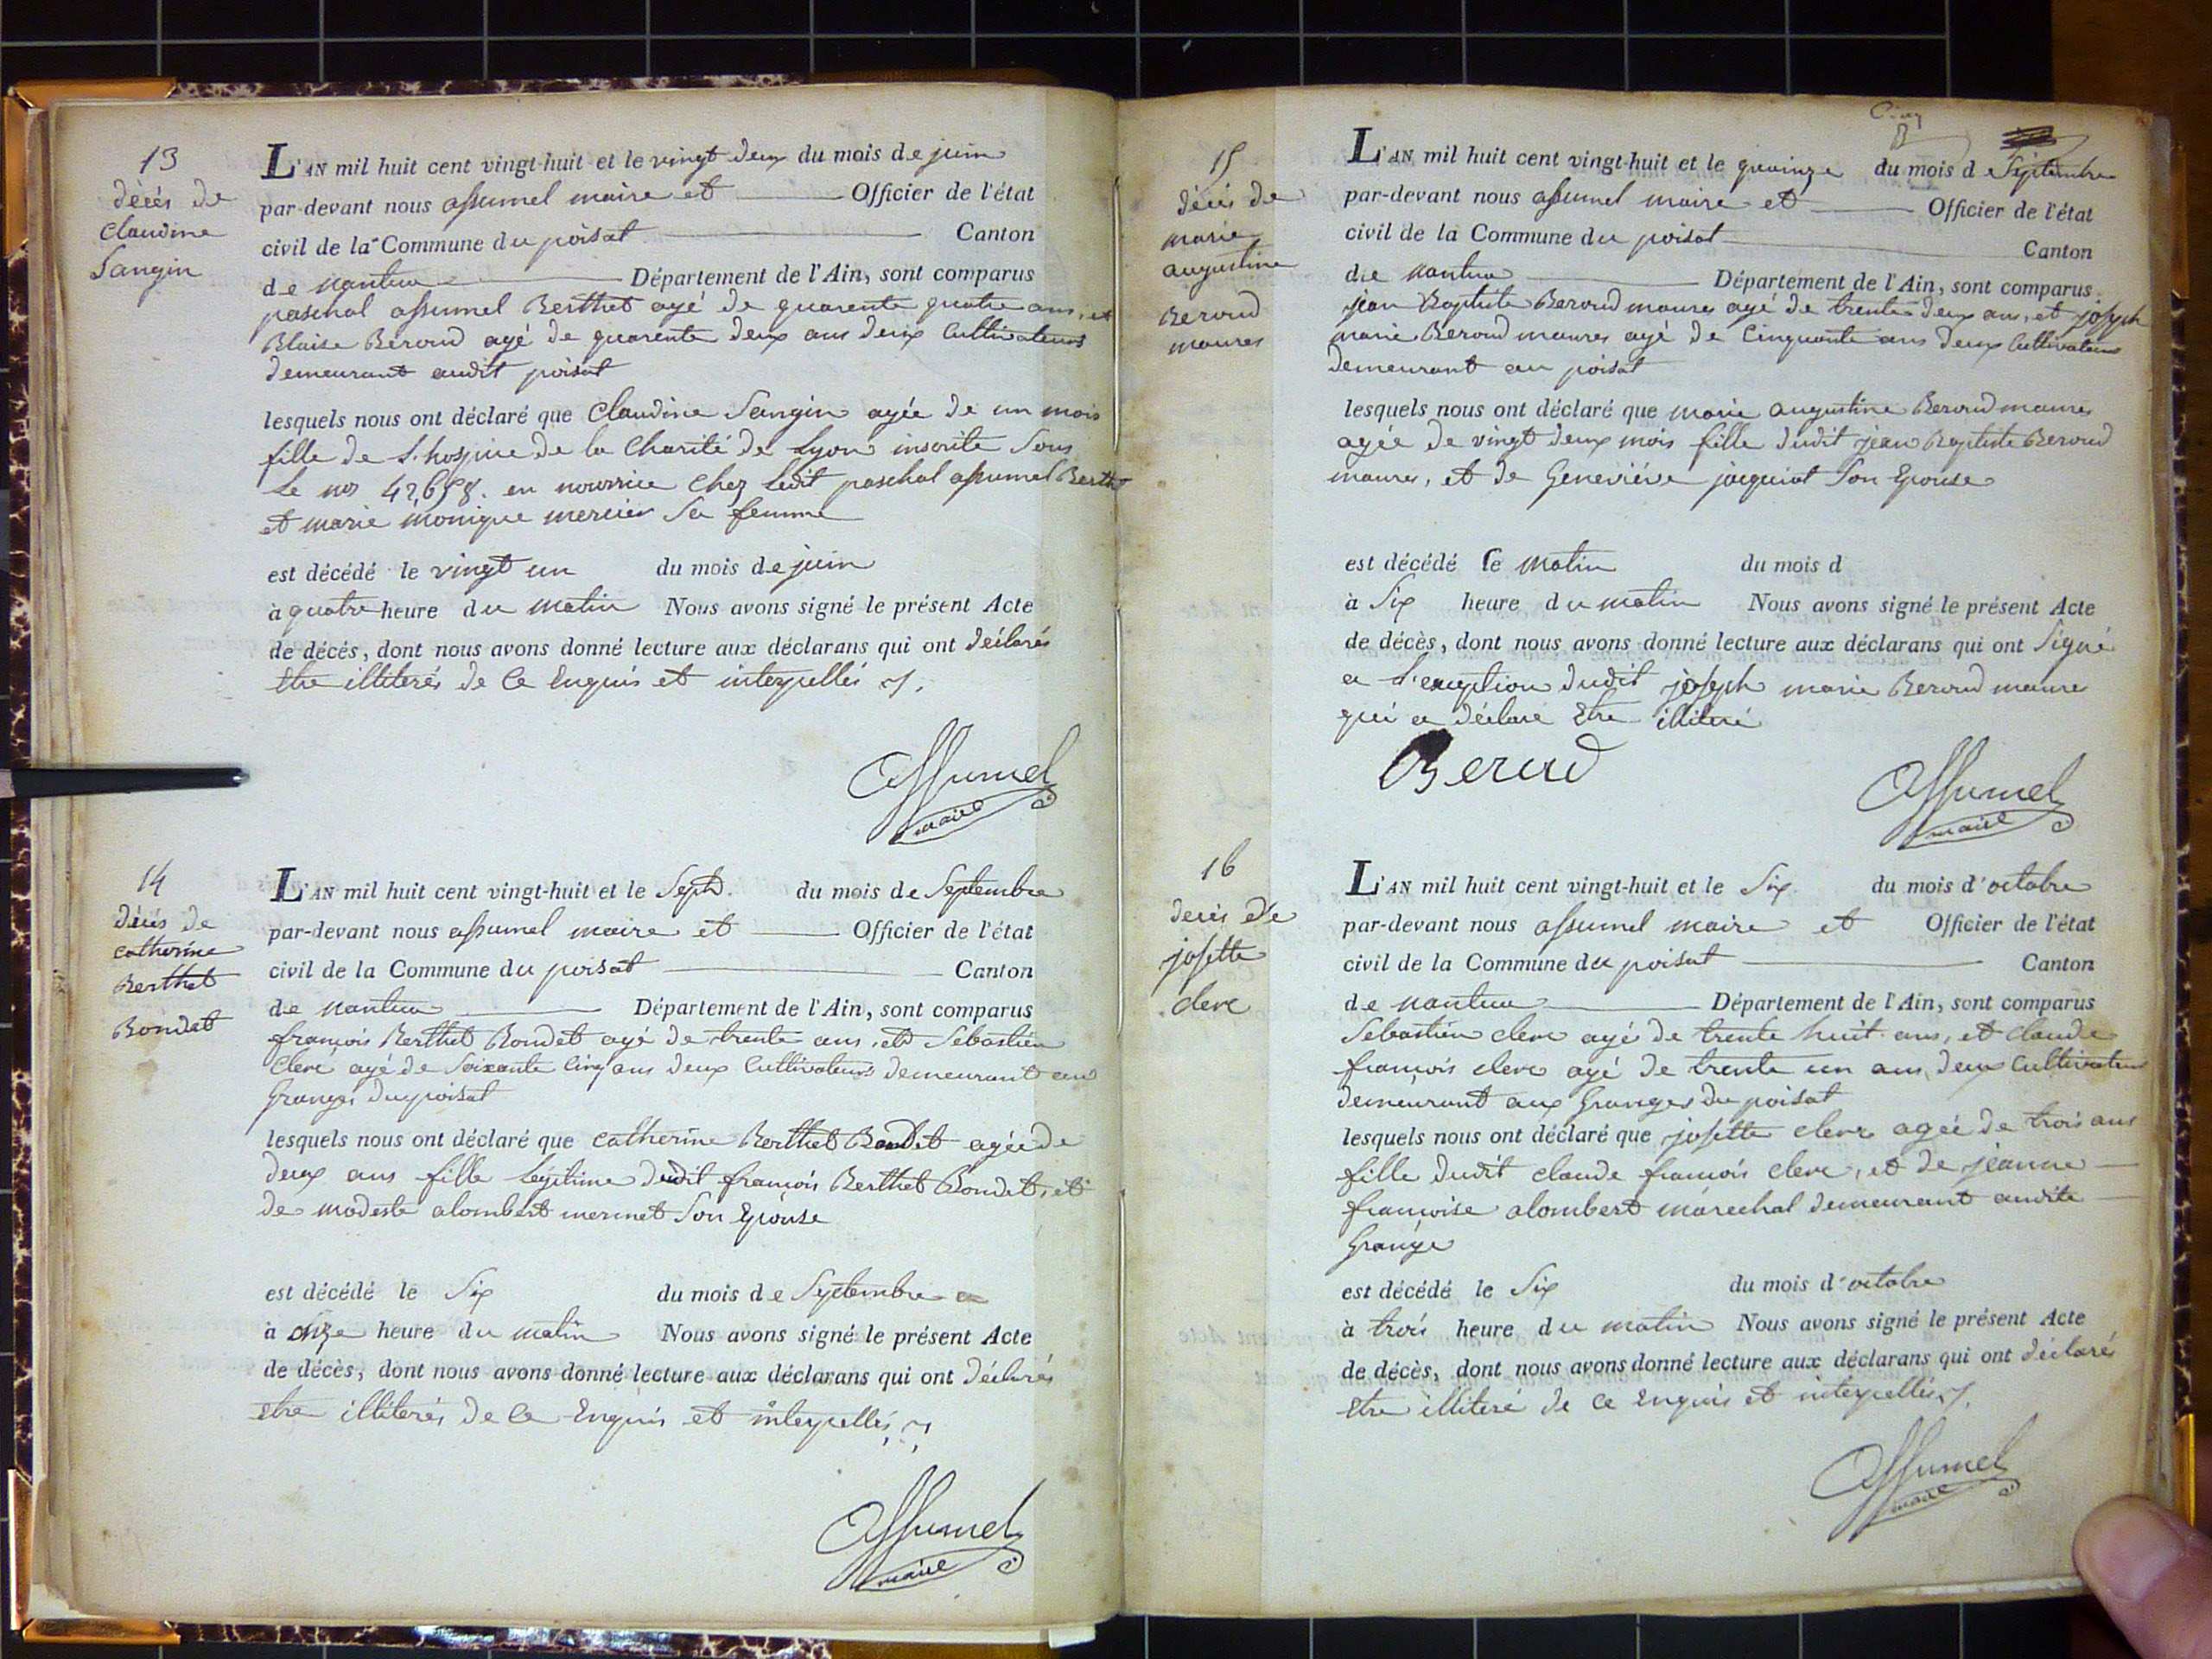 13
décès de
Claudine
Sangin
L'AN mil huit cent vingt-huit et le vingt deux du mois de juin
par-devant nous assumel maire et Officier de l'état
civil de la Commune du poisat Canton
de nantua Département de l'Ain, sont comparus
paschal assumel Berthet agé de quarente quatre ans, et
Blaise Beroud agé de quarente deux ans deux Cultivateurs
demeurant audit poisat
lesquels nous ont déclaré que Claudine Sangin agée de un mois
fille de L'hospice de la Charité de Lyon inscrite Sous
Le no 42658. en nourrice Chez Ledit paschal assumel Berthet
et marie monique mercier Sa femme
est décédé le vingt un du mois de juin
à quatre heure du matin Nous avons signé le présent Acte
de décès, dont nous avons donné lecture aux déclarans qui ont déclarés
Etre illiterés de Ce Enquis et interpellés
Assumel
maire
14
Décès de
catherine
Berthet
Bondat
L'AN mil huit cent vingt-huit et le Sept. du mois de Septembre
par-devant nous assumel maire et Officier de l'état
civil de la Commune du poisat Canton
de nantua Département de l'Ain, sont comparus
françois Berthet Bondet agé de trente ans, et Sébastien
Clerc agé de Soixante Cinq ans deux Cultivateurs demeurant aux
Granges du poisat
lesquels nous ont déclaré que catherine Berthet Bondet agée de
deux ans fille Légitime dudit françois Berthet Bondet, et
de modeste alombert mermet Son Epouse
est décédé le Six du mois de Septembre
à onze heure du matin Nous avons signé le présent Acte
de décès, dont nous avons donné lecture aux déclarans qui ont déclarés
etre illiterés de Ce Enquis et interpellés
Assumel
maire
15
décès de
marie
augustine
Beroud
maures
L'AN mil huit cent vingt-huit et le quinze du mois de Septembre
par-devant nous assumel maire et Officier de l'état
civil de la Commune du poisat Canton
de nantua Département de l'Ain, sont comparus
jean Baptiste Beroud maures agé de trente deux ans, et joseph
marie Beroud maures agé de Cinquante ans deux Cultivateurs
demeurant au poisat
lesquels nous ont déclaré que marie augustine Beroud maures
agée de vingt deux mois fille dudit jean Baptiste Beroud
maures, et de Geneviéve jacquiot Son Epouse
est décédé le matin du mois d
à Six heure du matin Nous avons signé le présent Acte
de décès, dont nous avons donné lecture aux déclarans qui ont Signé
a L'exception dudit joseph marie Beroud maure
qui a déclaré Etre illiteré
Berud
Assumel
maire
16
decès de
josette
clerc
L'AN mil huit cent vingt-huit et le Six du mois d'octobre
par-devant nous assumel maire et Officier de l'état
civil de la Commune du poisat Canton
de nantua Département de l'Ain, sont comparus
Sébastien clerc agé de trente huit ans, et claude
françois clerc agé de trente un ans, deux Cultivateurs
demeurant aux Granges du poisat
lesquels nous ont déclaré que josette clerc agée de trois ans
fille dudit claude françois clerc, et de jeanne
françoise alombert maréchal demeurant audite
Grange
est décédé le Six du mois d'octobre
à trois heure du matin Nous avons signé le présent Acte
de décès, dont nous avons donné lecture aux déclarans qui ont déclarés
Etre illiteré de Ce Enquis et interpellés
Assumel
maire